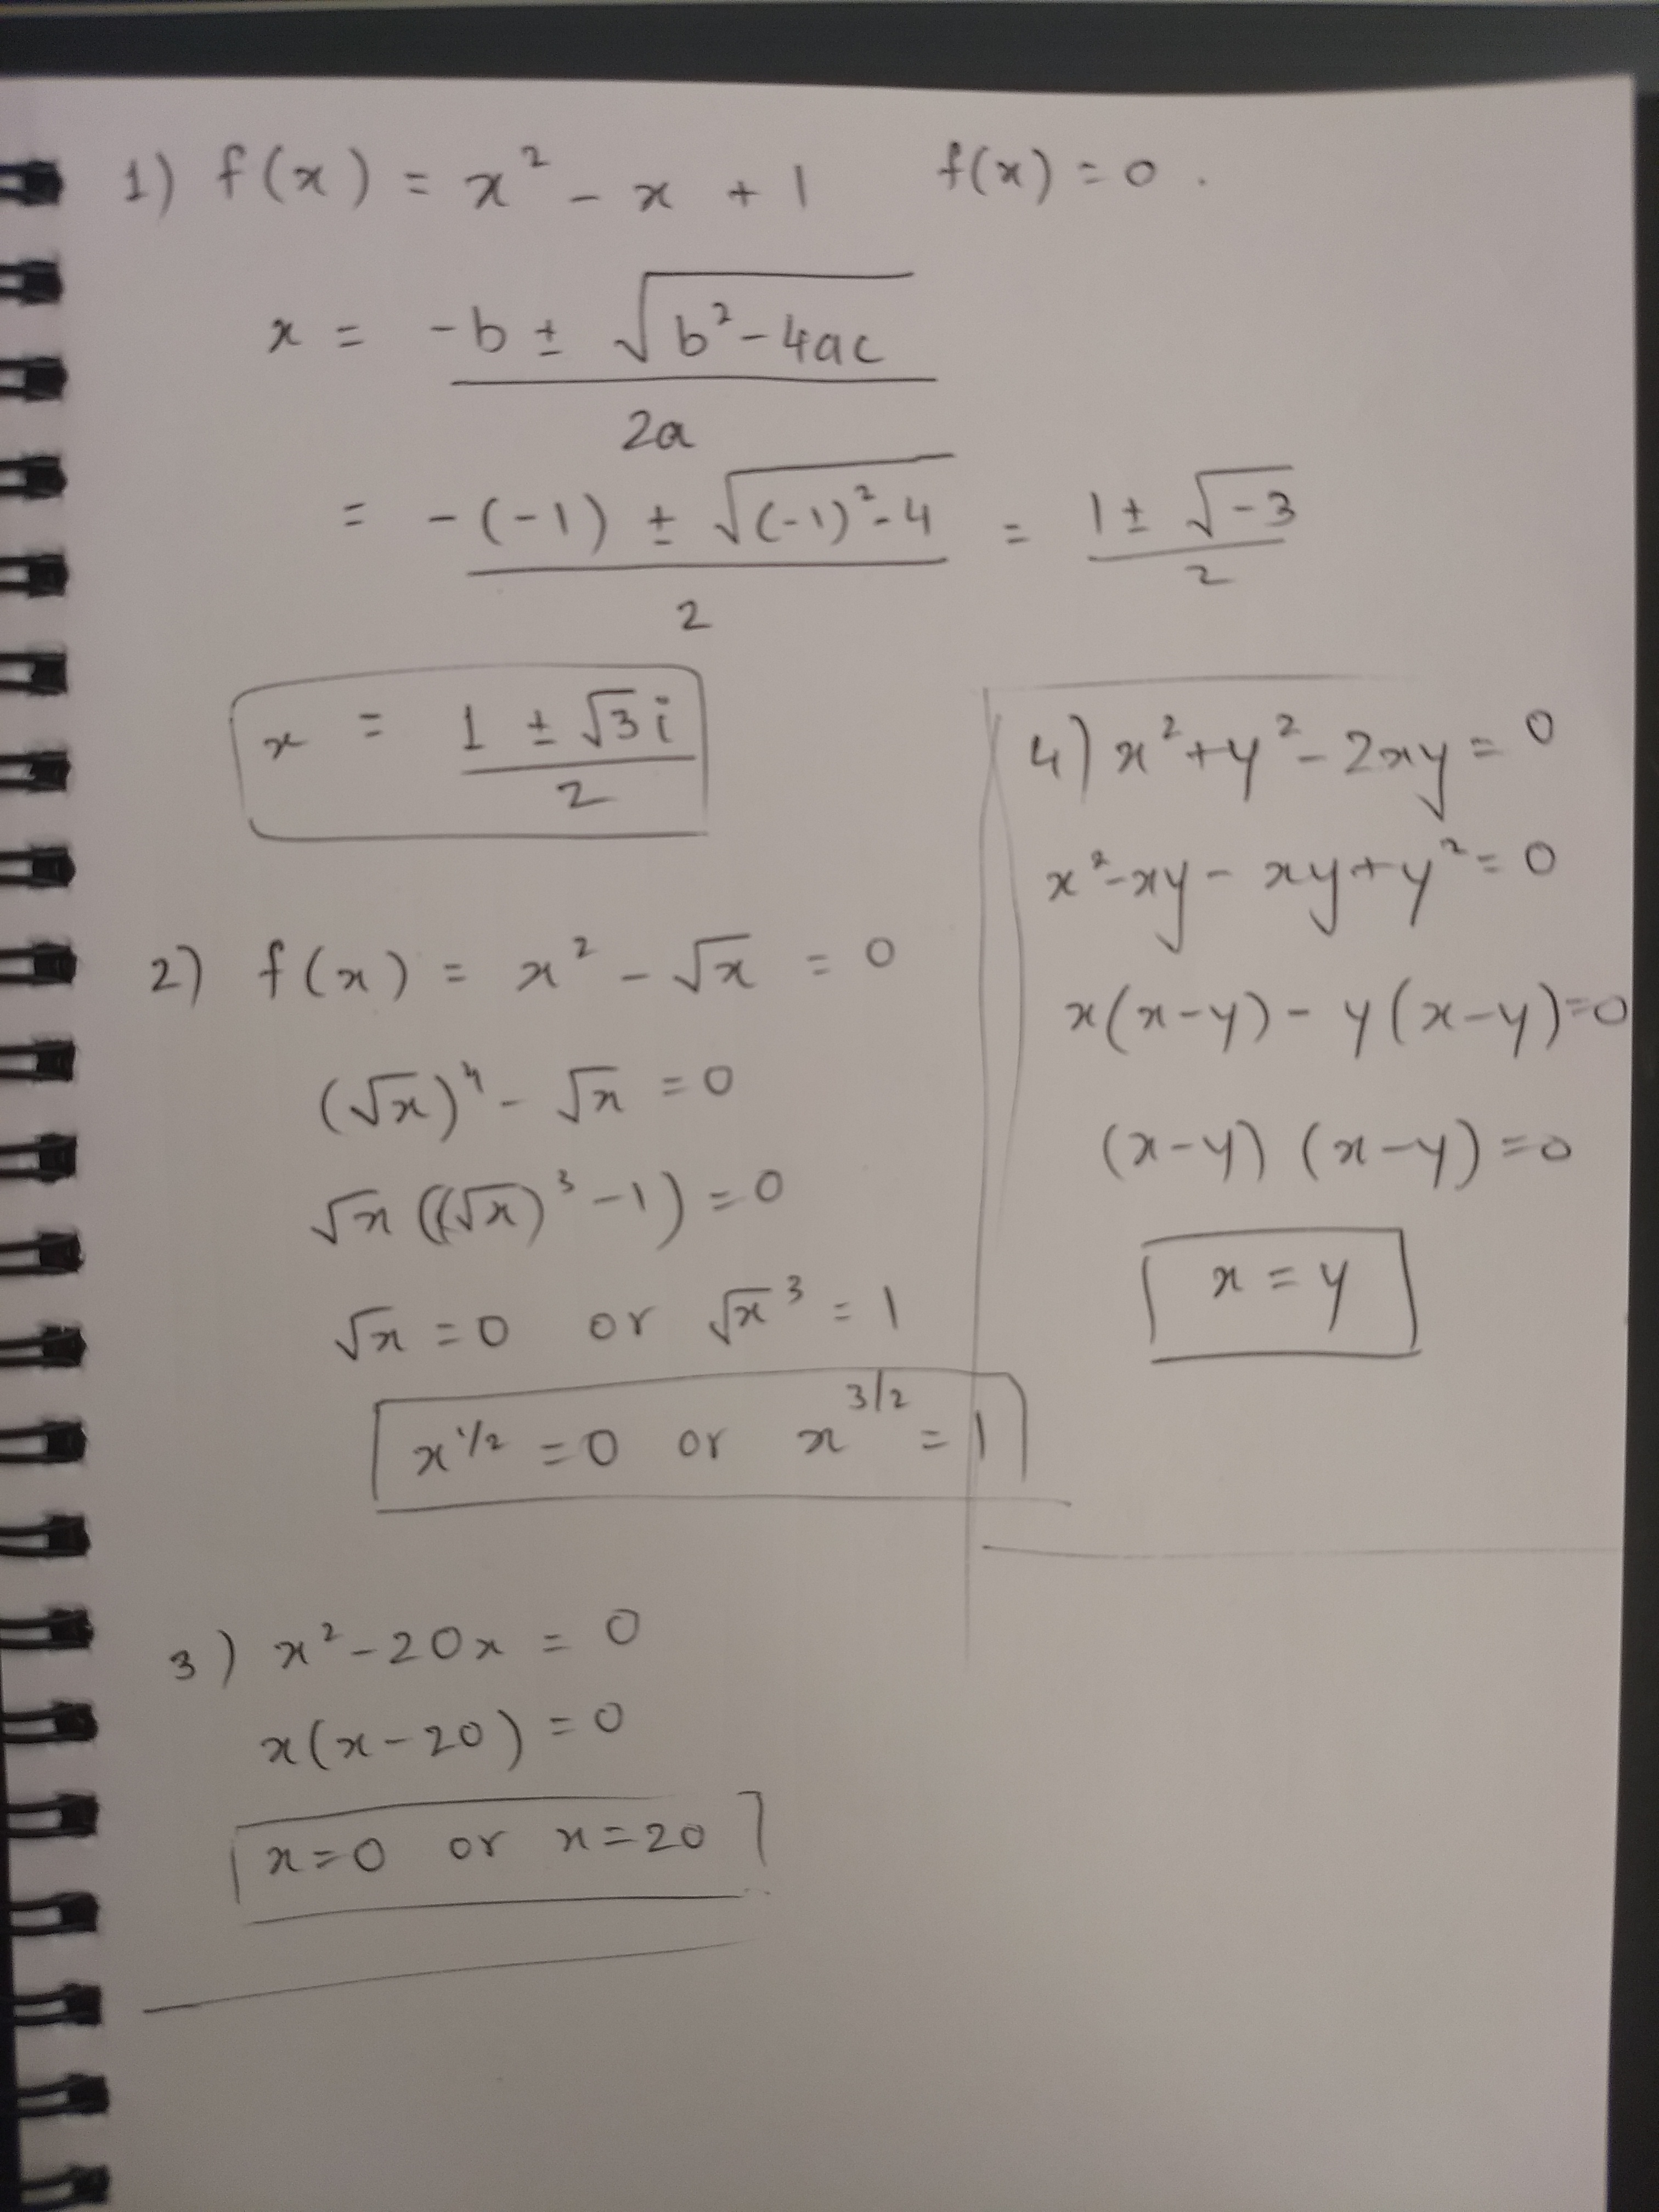 1) f(x) = x² - x + 1    f(x) = 0 .
x = (-b ± √(b² - 4ac)) / 2a
= (-(-1) ± √((-1)² - 4)) / 2 = (1 ± √-3) / 2
x = (1 ± √3 i) / 2
2) f(x) = x² - √x = 0
(√x)⁴ - √x = 0
√x ((√x)³ - 1) = 0
√x = 0 or √x³ = 1
x^1/2 = 0 or x^3/2 = 1
3) x² - 20x = 0
x(x - 20) = 0
x = 0 or x = 20
4) x² + y² - 2xy = 0
x² - xy - xy + y² = 0
x(x - y) - y(x - y) = 0
(x - y) (x - y) = 0
x = y